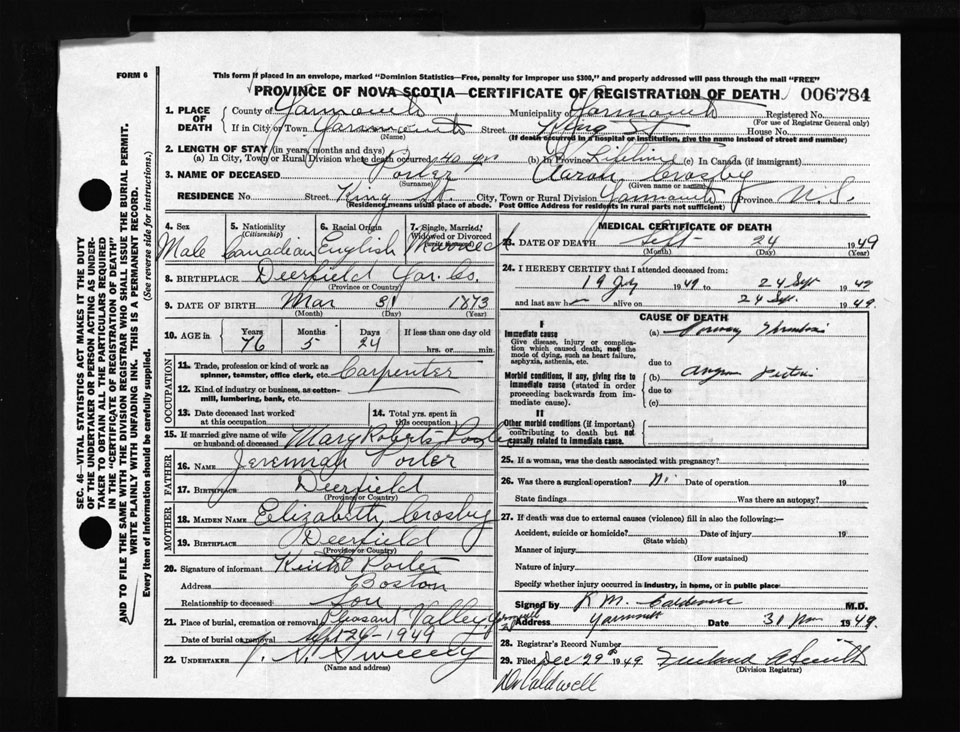 FORM 6
This form if placed in an envelope, marked "Dominion Statistics—Free, penalty for improper use $300," and properly addressed will pass through the mail "FREE"
PROVINCE OF NOVA SCOTIA—CERTIFICATE OF REGISTRATION OF DEATH 006784
1. PLACE OF DEATH
County of Yarmouth Municipality of Yarmouth Registered No.
(For use of Registrar General only)
If in City or Town Yarmouth Street King St House No.
(Name) (If death occurred in a hospital or institution, give the name instead of street and number)
2. LENGTH OF STAY (in years, months and days)
(a) In City, Town or Rural Division where death occurred 40 yrs (b) In Province Lifetime (c) In Canada (if immigrant)
3. NAME OF DECEASED Porter Aaron Crosby
(Surname) (Given name or names)
RESIDENCE No. Street King St. City, Town or Rural Division Yarmouth Province N.S.
(Residence means usual place of abode. Post Office Address for residents in rural parts not sufficient)
4. Sex 5. Nationality (Citizenship) 6. Racial Origin 7. Single, Married, Widowed or Divorced (write the word)
Male Canadian English
8. BIRTHPLACE Deerfield Yar. Co.
(Province or Country)
9. DATE OF BIRTH Mar 31 1873
(Month) (Day) (Year)
10. AGE IN Years Months Days If less than one day old
76 5 24 hrs. or min.
OCCUPATION
11. Trade, profession or kind of work as spinner, teamster, office clerk, etc. Carpenter
12. Kind of industry or business, as cotton-mill, lumbering, bank, etc.
13. Date deceased last worked at this occupation 14. Total yrs. spent in this occupation
15. If married give name of wife or husband of deceased Mary Roberts Porter
FATHER
16. NAME Jeremiah Porter
17. BIRTHPLACE Deerfield
(Province or Country)
MOTHER
18. MAIDEN NAME Elizabeth Crosby
19. BIRTHPLACE Deerfield
(Province or Country)
20. Signature of informant Keith Porter
Address Boston
Relationship to deceased Son
21. Place of burial, cremation or removal Pleasant Valley,
Date of burial or removal Sept 26-1949
22. UNDERTAKER Sweeny
(Name and address)
MEDICAL CERTIFICATE OF DEATH
23. DATE OF DEATH Sept 24 1949
(Month) (Day) (Year)
24. I HEREBY CERTIFY that I attended deceased from:
19 1949 to 24 Sept 1949
and last saw h alive on 24 Sept. 1949.
CAUSE OF DEATH
I
Immediate cause (a)
Give disease, injury or complication which caused death, not the mode of dying, such as heart failure, asphyxia, asthenia, etc.
due to
Morbid conditions, if any, giving rise to immediate cause (stated in order proceeding backwards from immediate cause). (b)
due to
(c)
II
Other morbid conditions (if important) contributing to death but not causally related to immediate cause.
25. If a woman, was the death associated with pregnancy?
26. Was there a surgical operation? Date of operation 19
State findings Was there an autopsy?
27. If death was due to external causes (violence) fill in also the following:—
Accident, suicide or homicide? Date of injury 19
(State which)
Manner of injury
(How sustained)
Nature of injury
Specify whether injury occurred in industry, in home, or in public place
Signed by M.D.
Address Yarmouth Date 31 1949.
28. Registrar's Record Number
29. Filed Dec 29th 1949
(Division Registrar)
Dr Caldwell
SEC. 46—VITAL STATISTICS ACT MAKES IT THE DUTY
OF THE UNDERTAKER OR PERSON ACTING AS UNDER-
TAKER TO OBTAIN ALL THE PARTICULARS REQUIRED
IN THE "CERTIFICATE OF REGISTRATION OF DEATH"
AND TO FILE THE SAME WITH THE DIVISION REGISTRAR WHO SHALL ISSUE THE BURIAL PERMIT.
WRITE PLAINLY WITH UNFADING INK. THIS IS A PERMANENT RECORD.
Every item of Information should be carefully supplied. (See reverse side for instructions.)